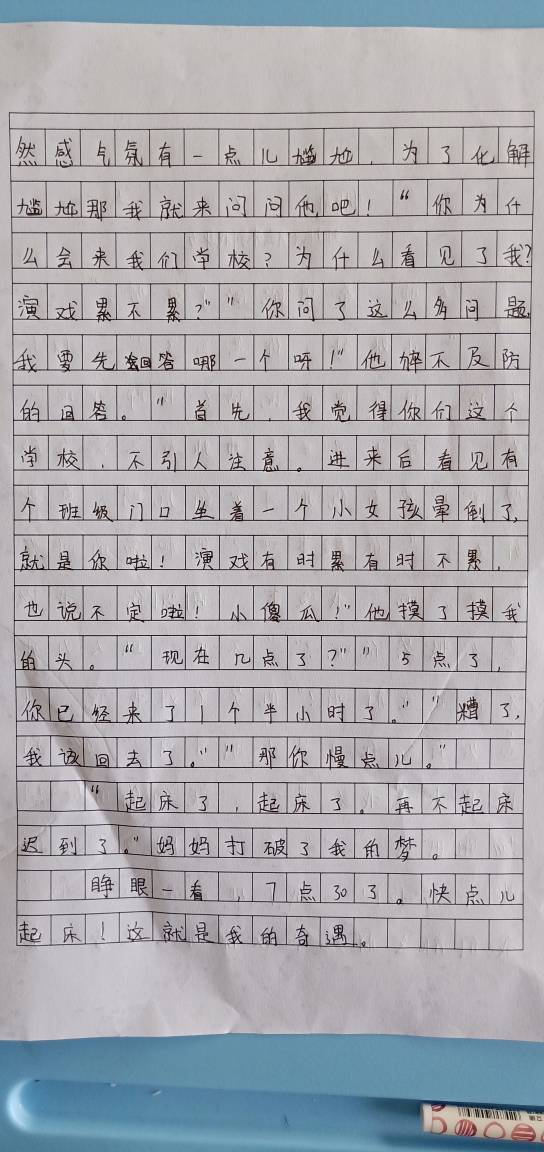 然感气氛有一点儿尴尬，为了化解
尴尬那我就来问问他吧！“你为什
么会来我们学校？为什么看见了我？
演戏累不累？”“你问了这么多问题，
我要先回答哪一个呀！”他猝不及防
的回答。“首先，我觉得你们这个
学校，不引人注意。进来后看见有
个班级门口坐着一个小女孩晕倒了，
就是你啦！演戏有时累有时不累，
也说不定啦！小傻瓜！”他摸了摸我
的头。“现在几点了？”“5点了，
你已经来了1个半小时了。”“糟了，
我该回去了。”“那你慢点儿。”
“起床了，起床了。再不起床
迟到了。”妈妈打破了我的梦。
睁眼一看，7点30了。快点儿
起床！这就是我的奇遇。